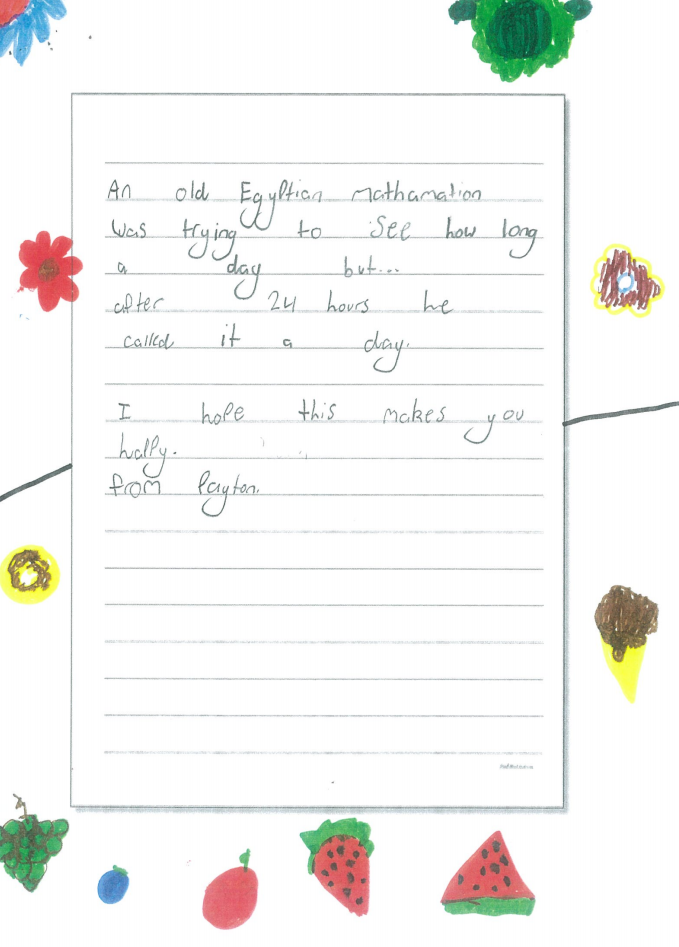 An old Egyptian mathamation
was trying to see how long
a day but...
after 24 hours he
called it a day.
I hope this makes you
happy.
from Payton.